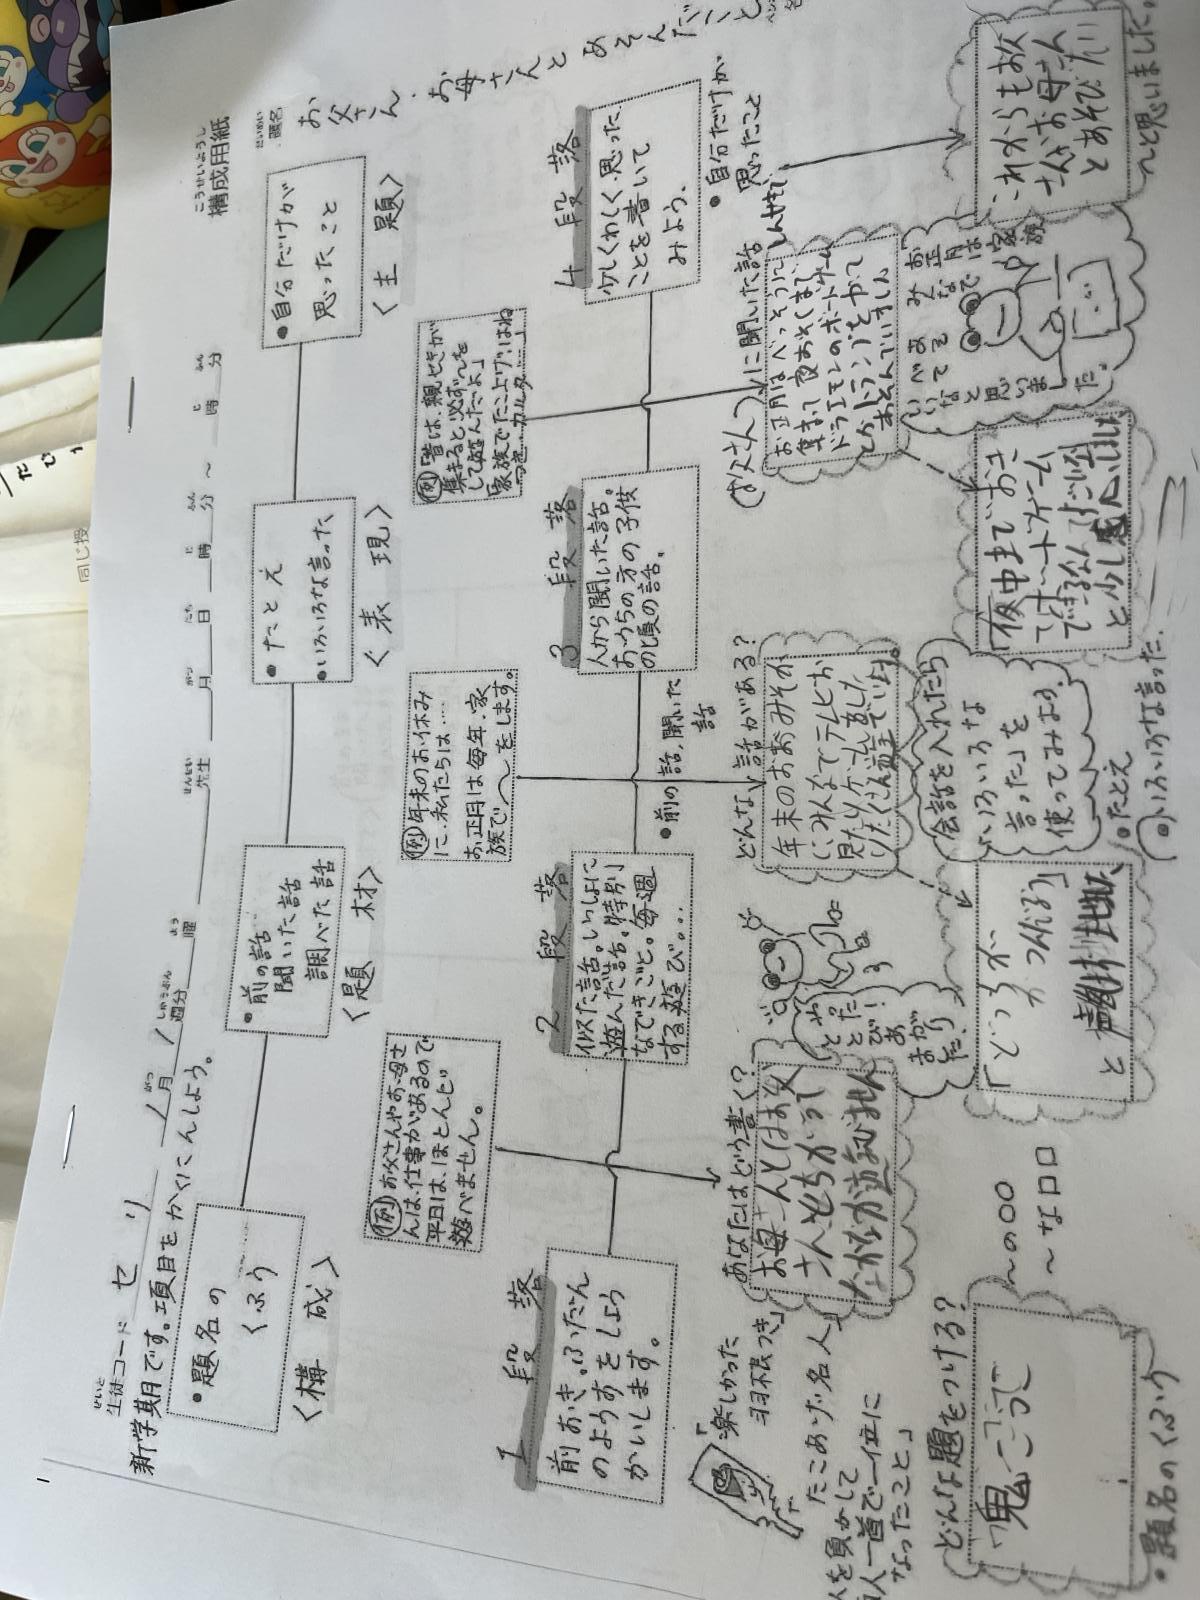 こうせいようし
構成用紙
だいめい
題名
お父さん・お母さんとあそんだこと
せいと
生徒コード セリ
1月 1週分
がつ
しゅうぶん
曜
よう
先生
せんせい
月 日 時 分 ～ 時 分
がつ
にち
じ
ふん
じ
ふん
新学期号です。項目をかくにんしよう。
・題名の
くふう
<構成>
・前の話
聞いた話
調べた話
<題材>
・たとえ
・いろいろな言った
<表現>
・自分だけが
思ったこと
<主題>
例 お父さんやお母さ
んは、仕事があるので
平日は、ほとんど
遊べません。
例 年末のお休み
に、私たちは……
お正月は毎年、家
族で～をします。
例 「昔は、親せきが
集まると必ず～を
して遊んだよ」
家族でたこ上げ、はね
1段落
前おき。ふだん
のようすをしょう
かいします。
2段落
似た話。いっしょに
遊んだ話。特別
なできごと。毎週
する遊び。..
・前の話、聞いた
話
3段落
人から聞いた話。
おうちの方の子供
の頃の話。
4段落
少しくわしく、思った
ことを書いて
みよう。
・自分だけが
思ったこと
「楽しかった
羽根つき」
たこあげ名人
を負かして
人一首で一位に
なったこと」
あなたはどう書く？
お母さんとはお父
さんとちがって
なかなか遊びません
どんな話がある？
年末のおおみそか
に、みんなでテレビお
見たりゲームお
(お父さん)に聞いた話
お正月はべっそうに
集まって夜おそくまで
ドラエモンのボードゲーム
とかトランプをやって
お正月は家族
みんなで
あそべて
いいなと
思いました。
どんな題をつける？
鬼ごっこ
・題名のくふう
～の〇〇
～な口口
「どっちが
つくだろう」
と
会話を入れたら
いろいろな
言った」を
使ってみよう。
・たとえ
・いろいろな言った
「夜中までおき
てボードゲーム
できるなんて
と少し感心した
これからもお父
さんやお母さん
とあそびたい
～と思いました。